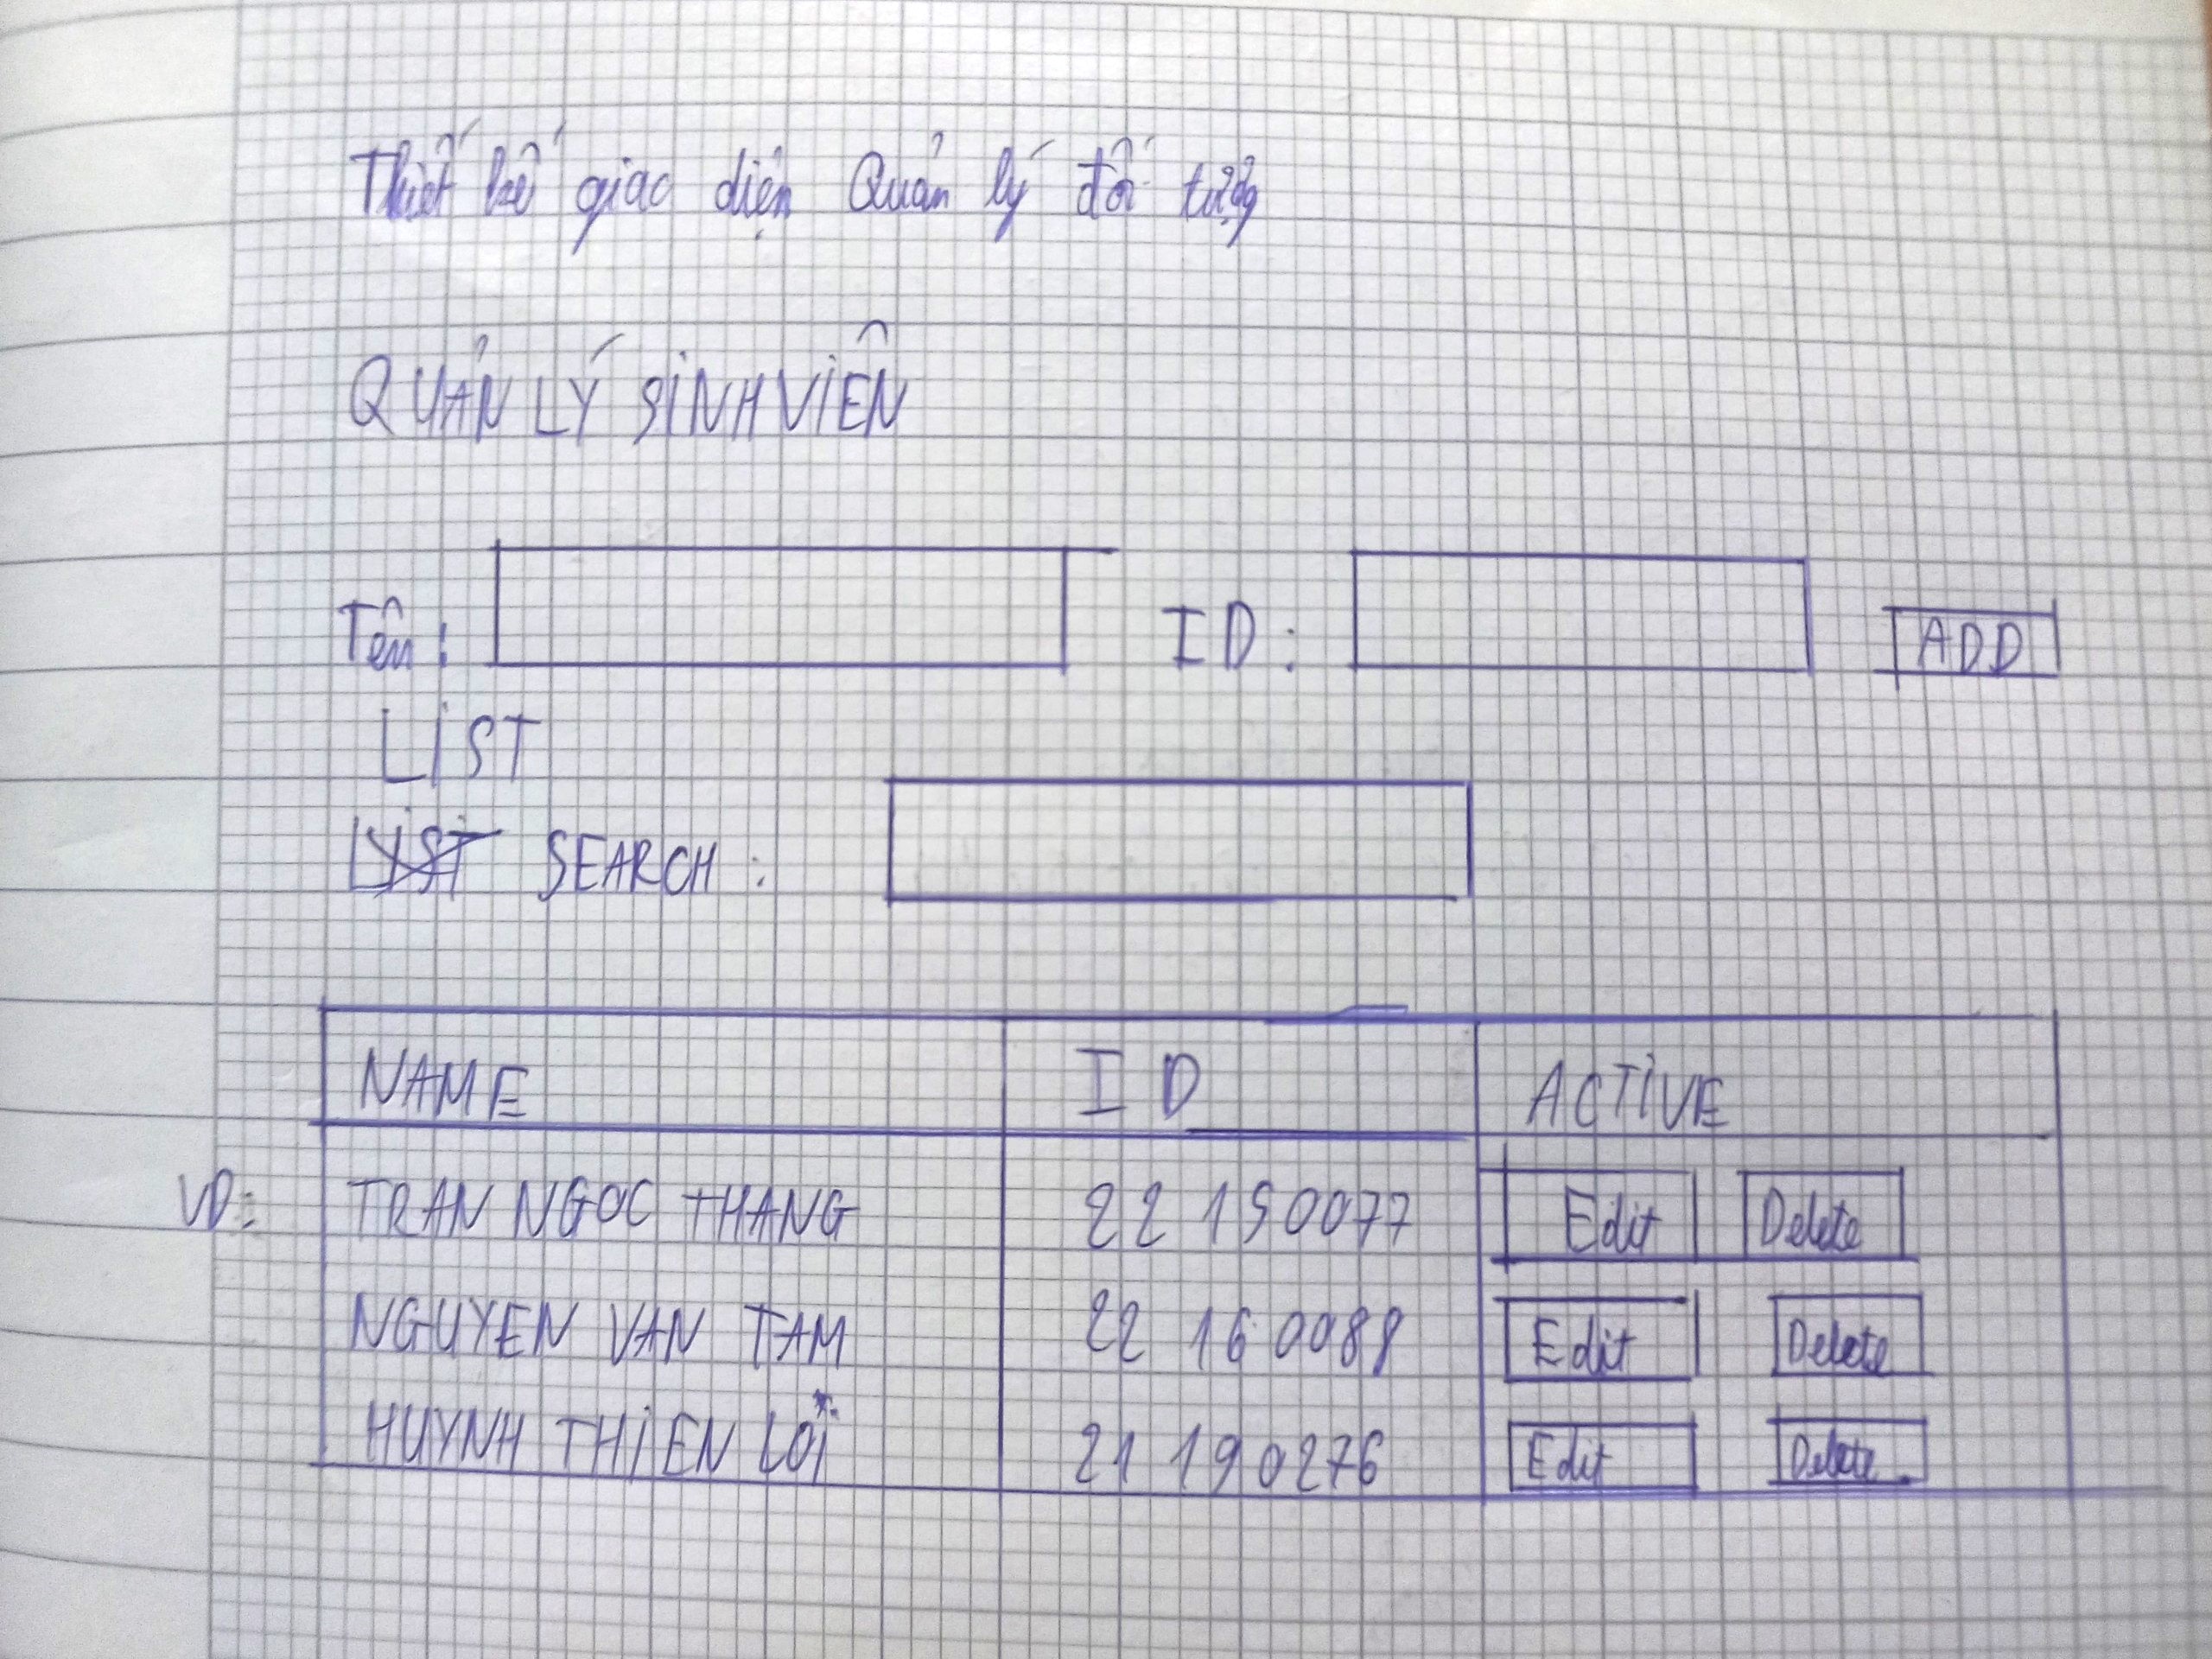 Thiết kế giao diện Quản lý đối tượng
QUẢN LÝ SINH VIÊN
Tên: ID: ADD
LIST
LIST SEARCH:
NAME ID ACTIVE
VD: TRAN NGOC THANG 22 150077 Edit Delete
NGUYEN VAN TAM 22 160088 Edit Delete
HUYNH THIEN LOI 21 190276 Edit Delete